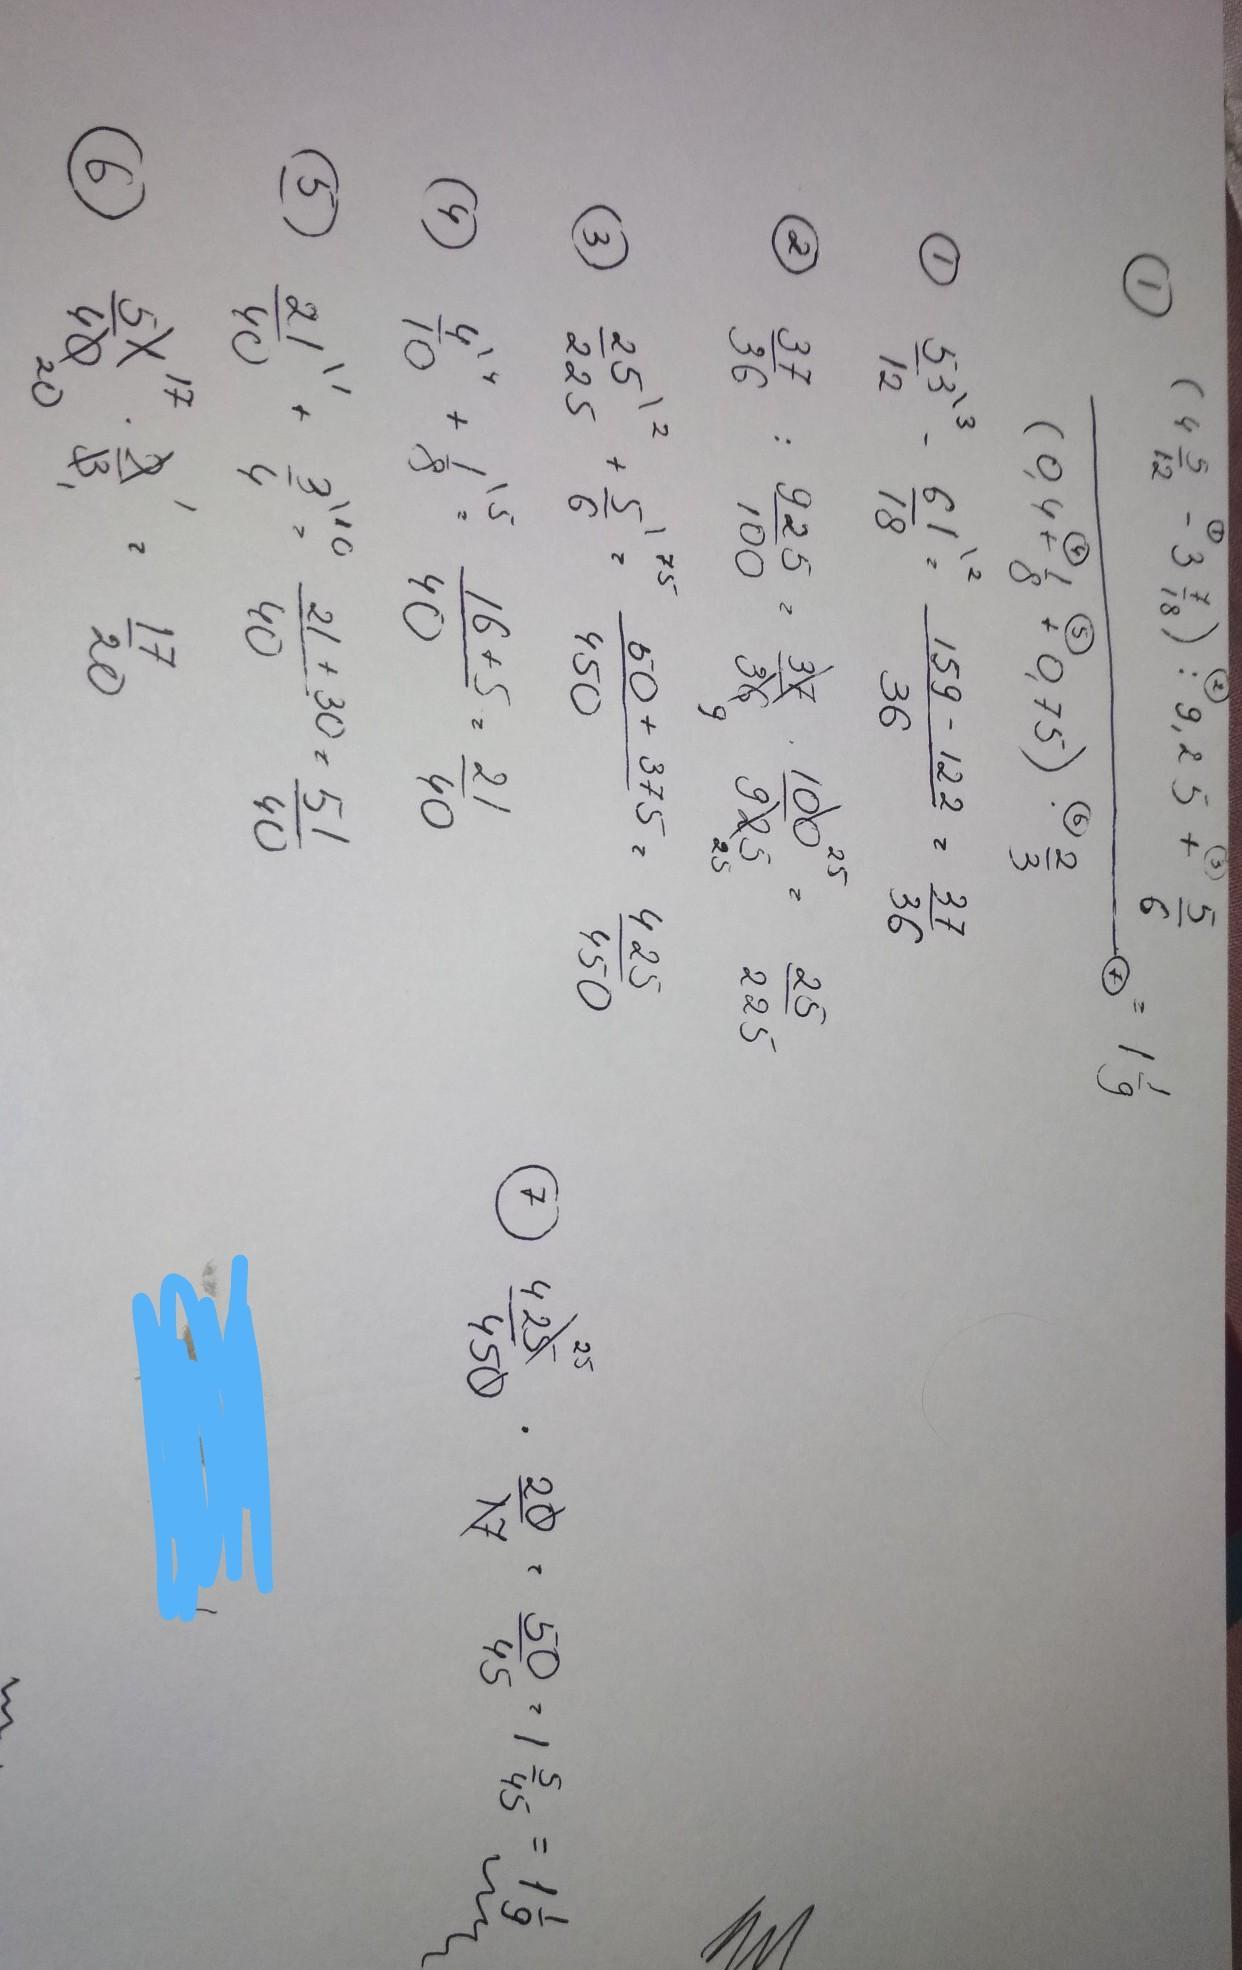 ① (4 5/12 -① 3 7/18) :② 9,25 +③ 5/6
⑦ = 1 1/9
(0,4 +④ 1/8 +⑤ 0,75) ·⑥ 2/3
① 53/12 \3 - 61/18 \2 = 159-122/36 = 37/36
② 37/36 : 925/100 = 37/36 9 · 100/925 25 25 = 25/225
③ 25/225 \2 + 5/6 \75 = 50+375/450 = 425/450
④ 4/10 \4 + 1/8 \5 = 16+5/40 = 21/40
⑤ 21/40 \1 + 3/4 \10 = 21+30/40 = 51/40
⑥ 51/40 17 20 · 2/3 1 1 = 17/20
⑦ 425/450 25 · 20/17 = 50/45 = 1 5/45 = 1 1/9